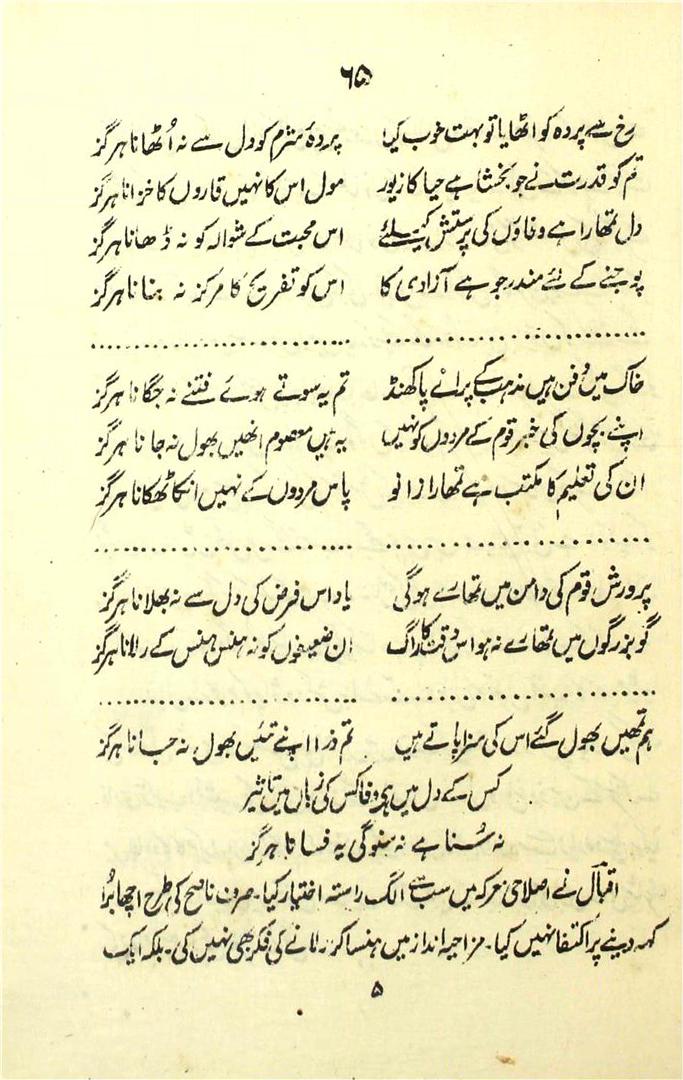 ۶۵
رخ سے پردہ کو اٹھایا تو بہت خوب کیا پردۂ شرم کو دل سے نہ اُٹھانا ہرگز
تم کو قدرت نے جو بخشا ہے حیا کا زیور مول اس کا نہیں قاروں کا خزانا ہرگز
دل تمھارا ہے وفاؤں کی پرستش کیلئے اس محبت کے شوالہ کو نہ ڈھانا ہرگز
پوجنے کے لئے مندر جو ہے آزادی کا اس کو تفریح کا مرکز نہ بنانا ہرگز
خاک میں دفن ہیں مذہب کے پرانے پاکھنڈ تم یہ سوتے ہوئے فتنے نہ جگانا ہرگز
اپنے بچوں کی خبر قوم کے مردوں کو نہیں یہ ہیں معصوم انھیں بھول نہ جانا ہرگز
ان کی تعلیم کا مکتب ہے تمھارا زانو پاس مردوں کے نہیں انکا ٹھکانا ہرگز
پرورش قوم کی دامن میں تمھارے ہوگی یاد اس فرض کی دل سے نہ بھلانا ہرگز
گو بزرگوں میں تمھارے نہ ہو اس وقت کا راگ ان ضعیفوں کو نہ ہنس ہنس کے رلانا ہرگز
ہم تمھیں بھول گئے اس کی سزا پاتے ہیں تم ذرا اپنے تئیں بھول نہ جانا ہرگز
کس کے دل میں ہے وفا کس کی زباں میں تاثیر
نہ سُنا ہے نہ سنوگی یہ فسانا ہرگز
اقبال نے اصلاحی معرکہ میں سب سے الگ راستہ اختیار کیا۔ صرف ناصح کی طرح اچھا بُرا
کہہ دینے پر اکتفا نہیں کیا۔ مزاحیہ انداز میں ہنسا کر رلانے کی فکر بھی نہیں کی۔ بلکہ ایک
۵